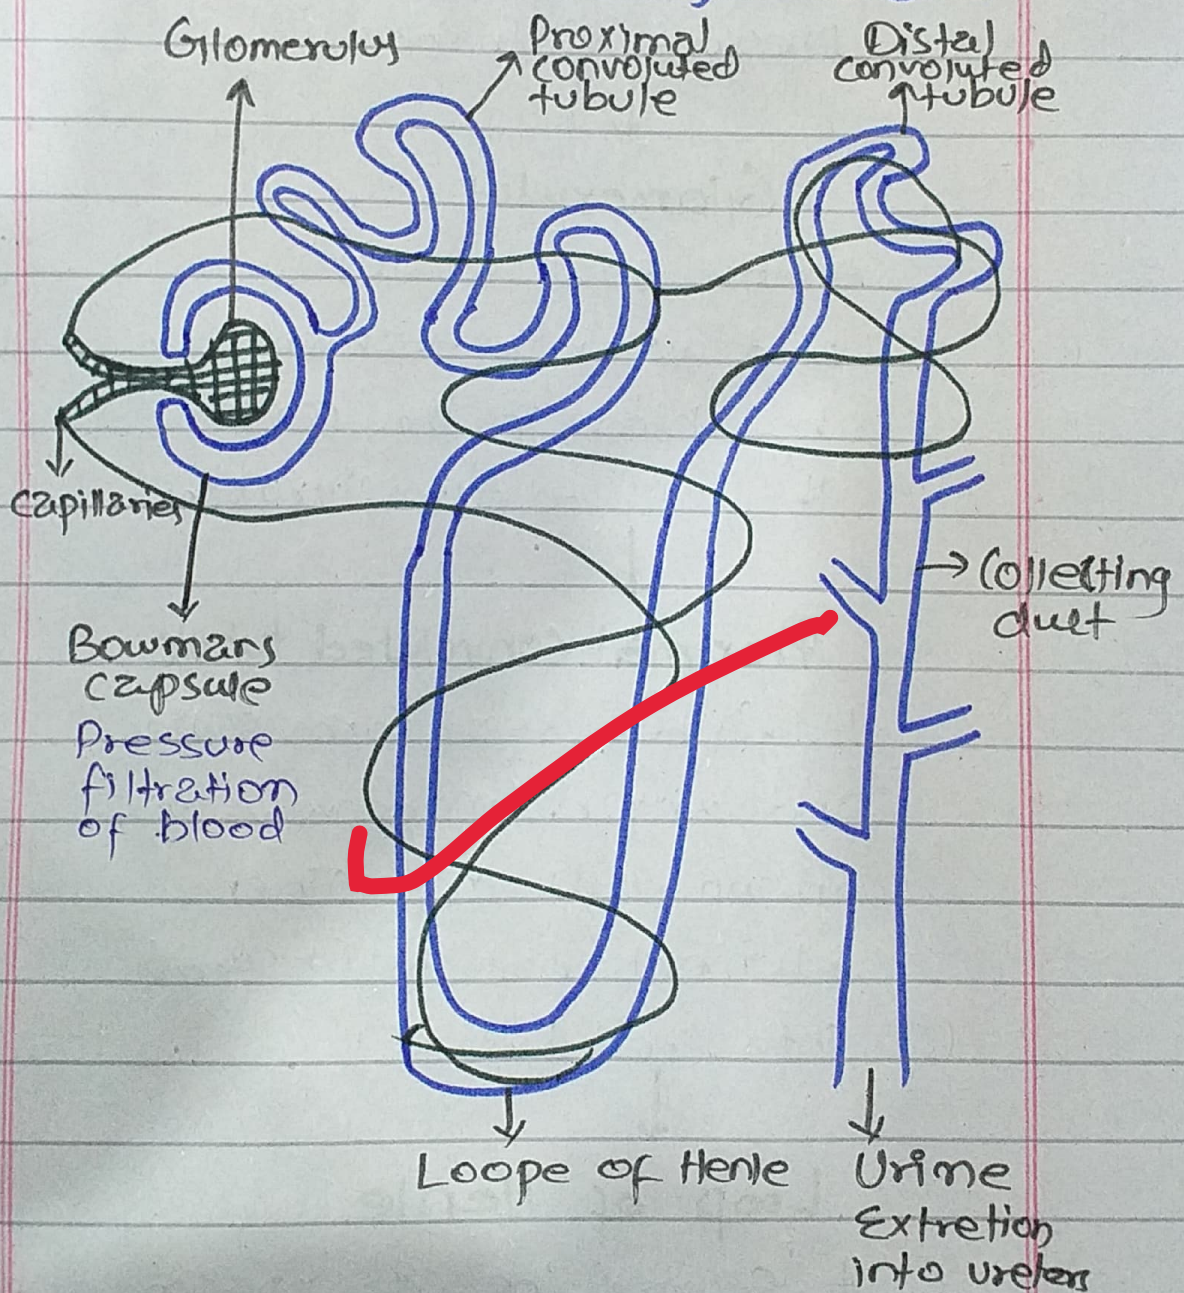 Glomerulus
Proximal
convoluted
tubule
Distal
convoluted
tubule
Capillaries
Bowmans
capsule
Pressure
filtration
of blood
Collecting
duct
Loope of Henle
Urine
Extretion
into ureters